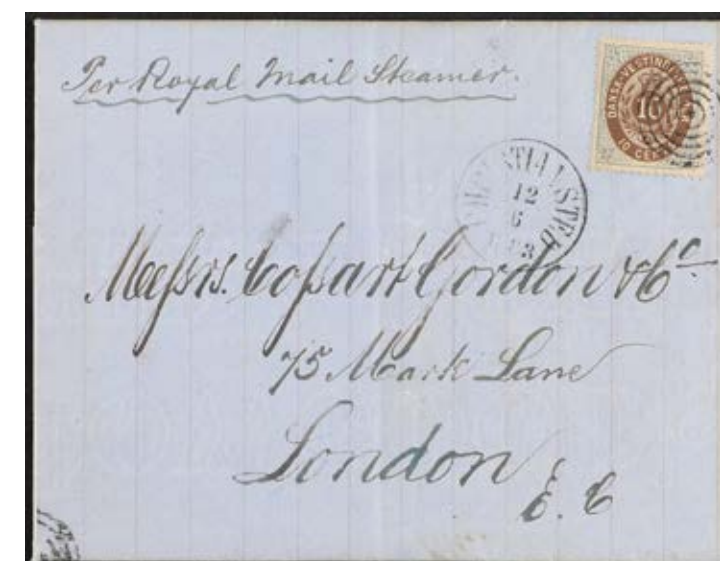 Per Royal Mail Steamer.
DANSK-VESTINDISKE
10
10 CENTS
CHRISTIANSTED
12
6
Messrs. Cossart Gordon & Cº
75 Mark Lane
London
E. C